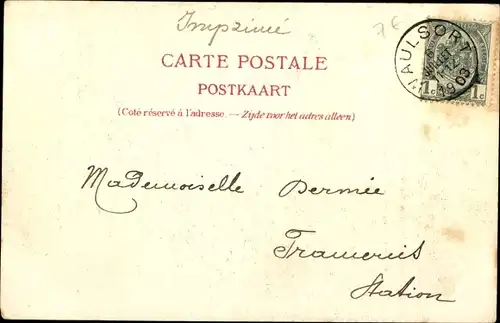 Imprimé
7€
CARTE POSTALE
POSTKAART
(Côté réservé à l'adresse. — Zijde voor het adres alleen)
WAULSORT
1903
1c 1c
Mademoiselle Dermée
Frameries
Station